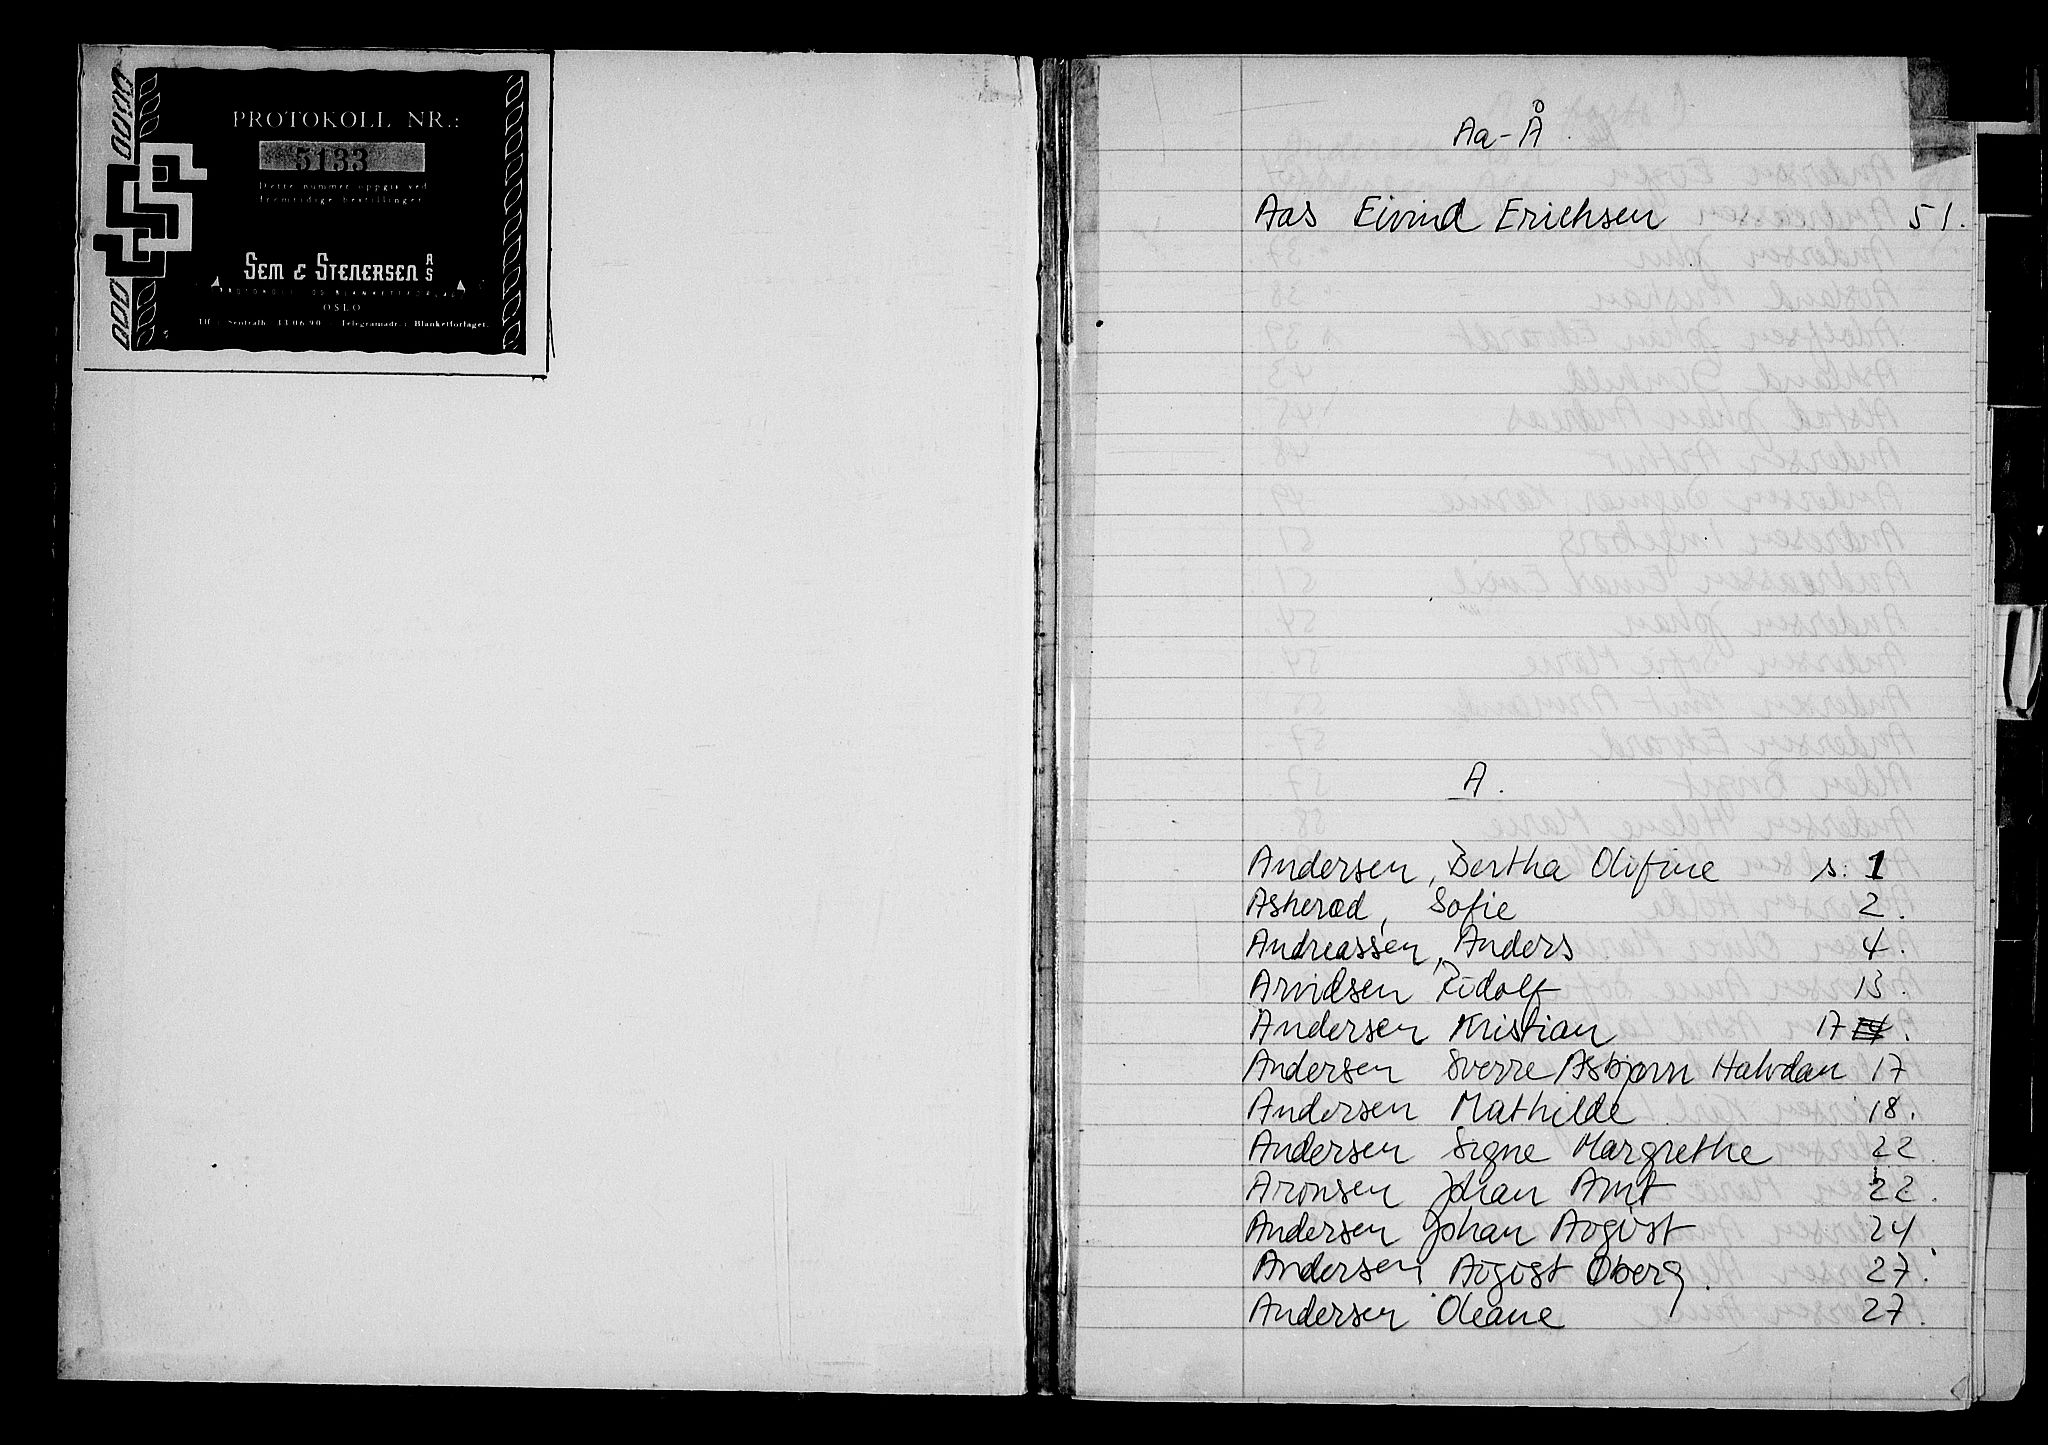 PROTOKOLL NR.:
5133
Dette nummer oppgis ved
fremtidige bestillinger
SEM & STENERSEN A/S
PROTOKOLL- OG BLANKETTFORLAG
OSLO
Tlf.: Sentralb. 13 06 90 - Telegramadr.: Blanketforlaget.
Aa-Å.
Aas Eivind Erichsen 51.
A.
Andersen, Bertha Olifine s: 1
Askerød, Sofie 2.
Andreassen, Anders 4.
Arvidsen Rudolf 13.
Andersen Kristian 17
Andersen Sverre Asbjørn Halvdan 17
Andersen Mathilde 18.
Andersen Signe Margrethe 22.
Aronsen Johan Arnt 22.
Andersen Johan August 24
Andersen August Oberg. 27.
Andersen Oleane 27.